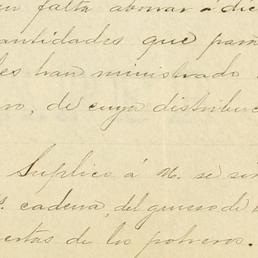 falta abonar á dic
cantidades que para
les han ministrado
ro, de cuya distribuc
Suplico á U. se sir
cadena, del grueso de
de los potreros.